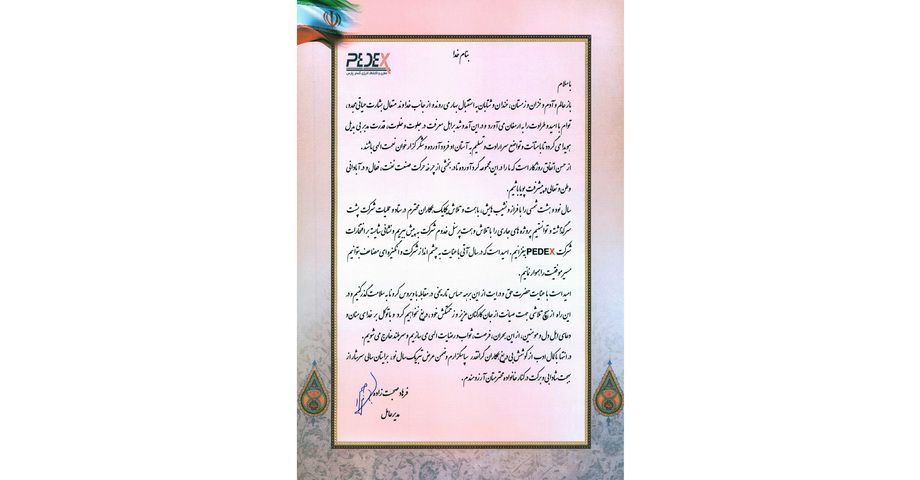 PEDEX
بنام خدا
با سلام
باز عالم و آدم و خزان و زمستان، خندان و شتابان به استقبال بهار می روند و از جانب خداوند متعال بشارت حیاتی مجدد،
توام با امید و طراوت را به ارمغان می آورد و در این آمد و شد بر اهل معرفت در جلوت و خلوت، قدرت مدبر بی بدیل
هویدا می گردد تا با متانت و تواضع سر ارادت و تسلیم به آستان او فرود آورده و شکرگزار خوان نعمت الهی باشند.
از حسن اتفاق روزگار است که ما را در این مجموعه گرد آورده تا در بخشی از چرخه حرکت صنعت نفت، فعال و در آبادانی
وطن و تعالی و پیشرفت پویا باشیم.
سال نود و هشت شمسی را با فراز و نشیب هایش، با همت و تلاش یکایک همکاران محترم در ستاد و عملیات شرکت پشت
سر گذاشته و توانستیم پروژه های جاری را با تلاش و همت پرسنل خدوم شرکت به پیش ببریم و نشانی شایسته بر افتخارات
شرکت PEDEX بیفزائیم. امید است که در سال آتی با عنایت به چشم انداز شرکت و انگیزه ای مضاعف بتوانیم
مسیر موفقیت را هموار نمائیم.
امید است با عنایت حضرت حق و درایت از این برهه حساس تاریخی در مقابله با ویروس کرونا به سلامت گذر کنیم و در
این راه از هیچ تلاشی جهت صیانت از جان کارکنان عزیز و زحمتکش خود، دریغ نخواهیم کرد و با توکل بر خدای منان و
دعای اهل دل و مومنین، از این بحران، فرصت، ثواب و رضایت الهی می سازیم و سربلند خارج می شویم.
در انتها با کمال ادب از کوشش بی دریغ همکاران گرانقدر سپاسگزارم و ضمن عرض تبریک سال نو، برایتان سالی سرشار از
بهجت شادابی و برکت در کنار خانواده محترمتان آرزومندم.
فرهاد صحبت زاده
مدیرعامل